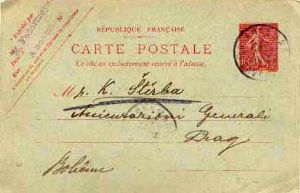 RÉPUBLIQUE FRANÇAISE
CARTE POSTALE
Ce côté est exclusivement réservé à l'adresse.
M p. K. Štěrba
Assicurazioni Generali
Prag
Bohême